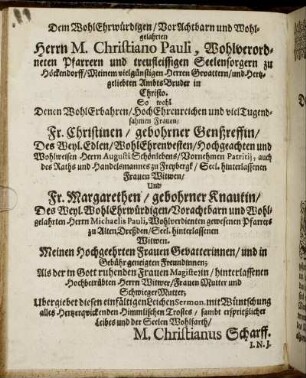 Dem WohlEhrwürdigen / VorAchtbarn und Wohl-
gelahrten
Herrn M. Christiano Pauli, Wohlverord-
neten Pfarrern und treufleissigen Seelensorgern zu
Höckendorff / Meinem vielgünstigen Herren Gevattern / und Hertz-
geliebten Ambts Bruder in
Christo.
So wohl
Denen WohlErbahren / HochEhrenreichen und viel Tugend-
sahmen Frauen /
Fr. Christinen / gebohrner Genßreffin /
Des Weyl. Edlen / WohlEhrenvesten / Hochgeachten und
Wohlweisen Herrn Augusti Schönlebens / Vornehmen Patritij, auch
des Raths und Handelsmannes zu Freybergk / Seel. hinterlassenen
Frauen Witwen /
Und
Fr. Margarethen / gebohrner Knautin /
Des Weyl. WohlEhrwürdigen / Vorachtbarn und Wohl-
gelahrten Herrn Michaelis Pauli, Wohlverdienten gewesenen Pfarrers
zu Alten Dreßden / Seel. hinterlassenen
Witwen.
Meinen Hochgeehrten Frauen Gevatterinnen / und in
Gebühr geneigten Freundinnen;
Als der in Gott ruhenden Frauen Magisterin / hinterlassenen
Hochbetrübten Herrn Witwer / Frauen Mutter und
Schwieger Mutter;
Ubergiebet diesen einfältigen Leichen Sermon. mit Wüntschung
alles Hertzerquickenden Himmlischen Trostes / sambt ersprießlicher
Leibes und der Seelen Wohlfarth /
M. Christianus Scharff.
I. N. J.